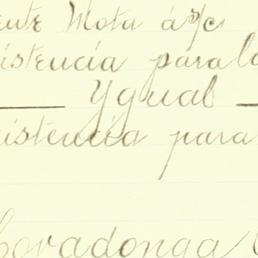 ente Mota á s/c
istencia para lo
Ygual
istencia para
Covadonga